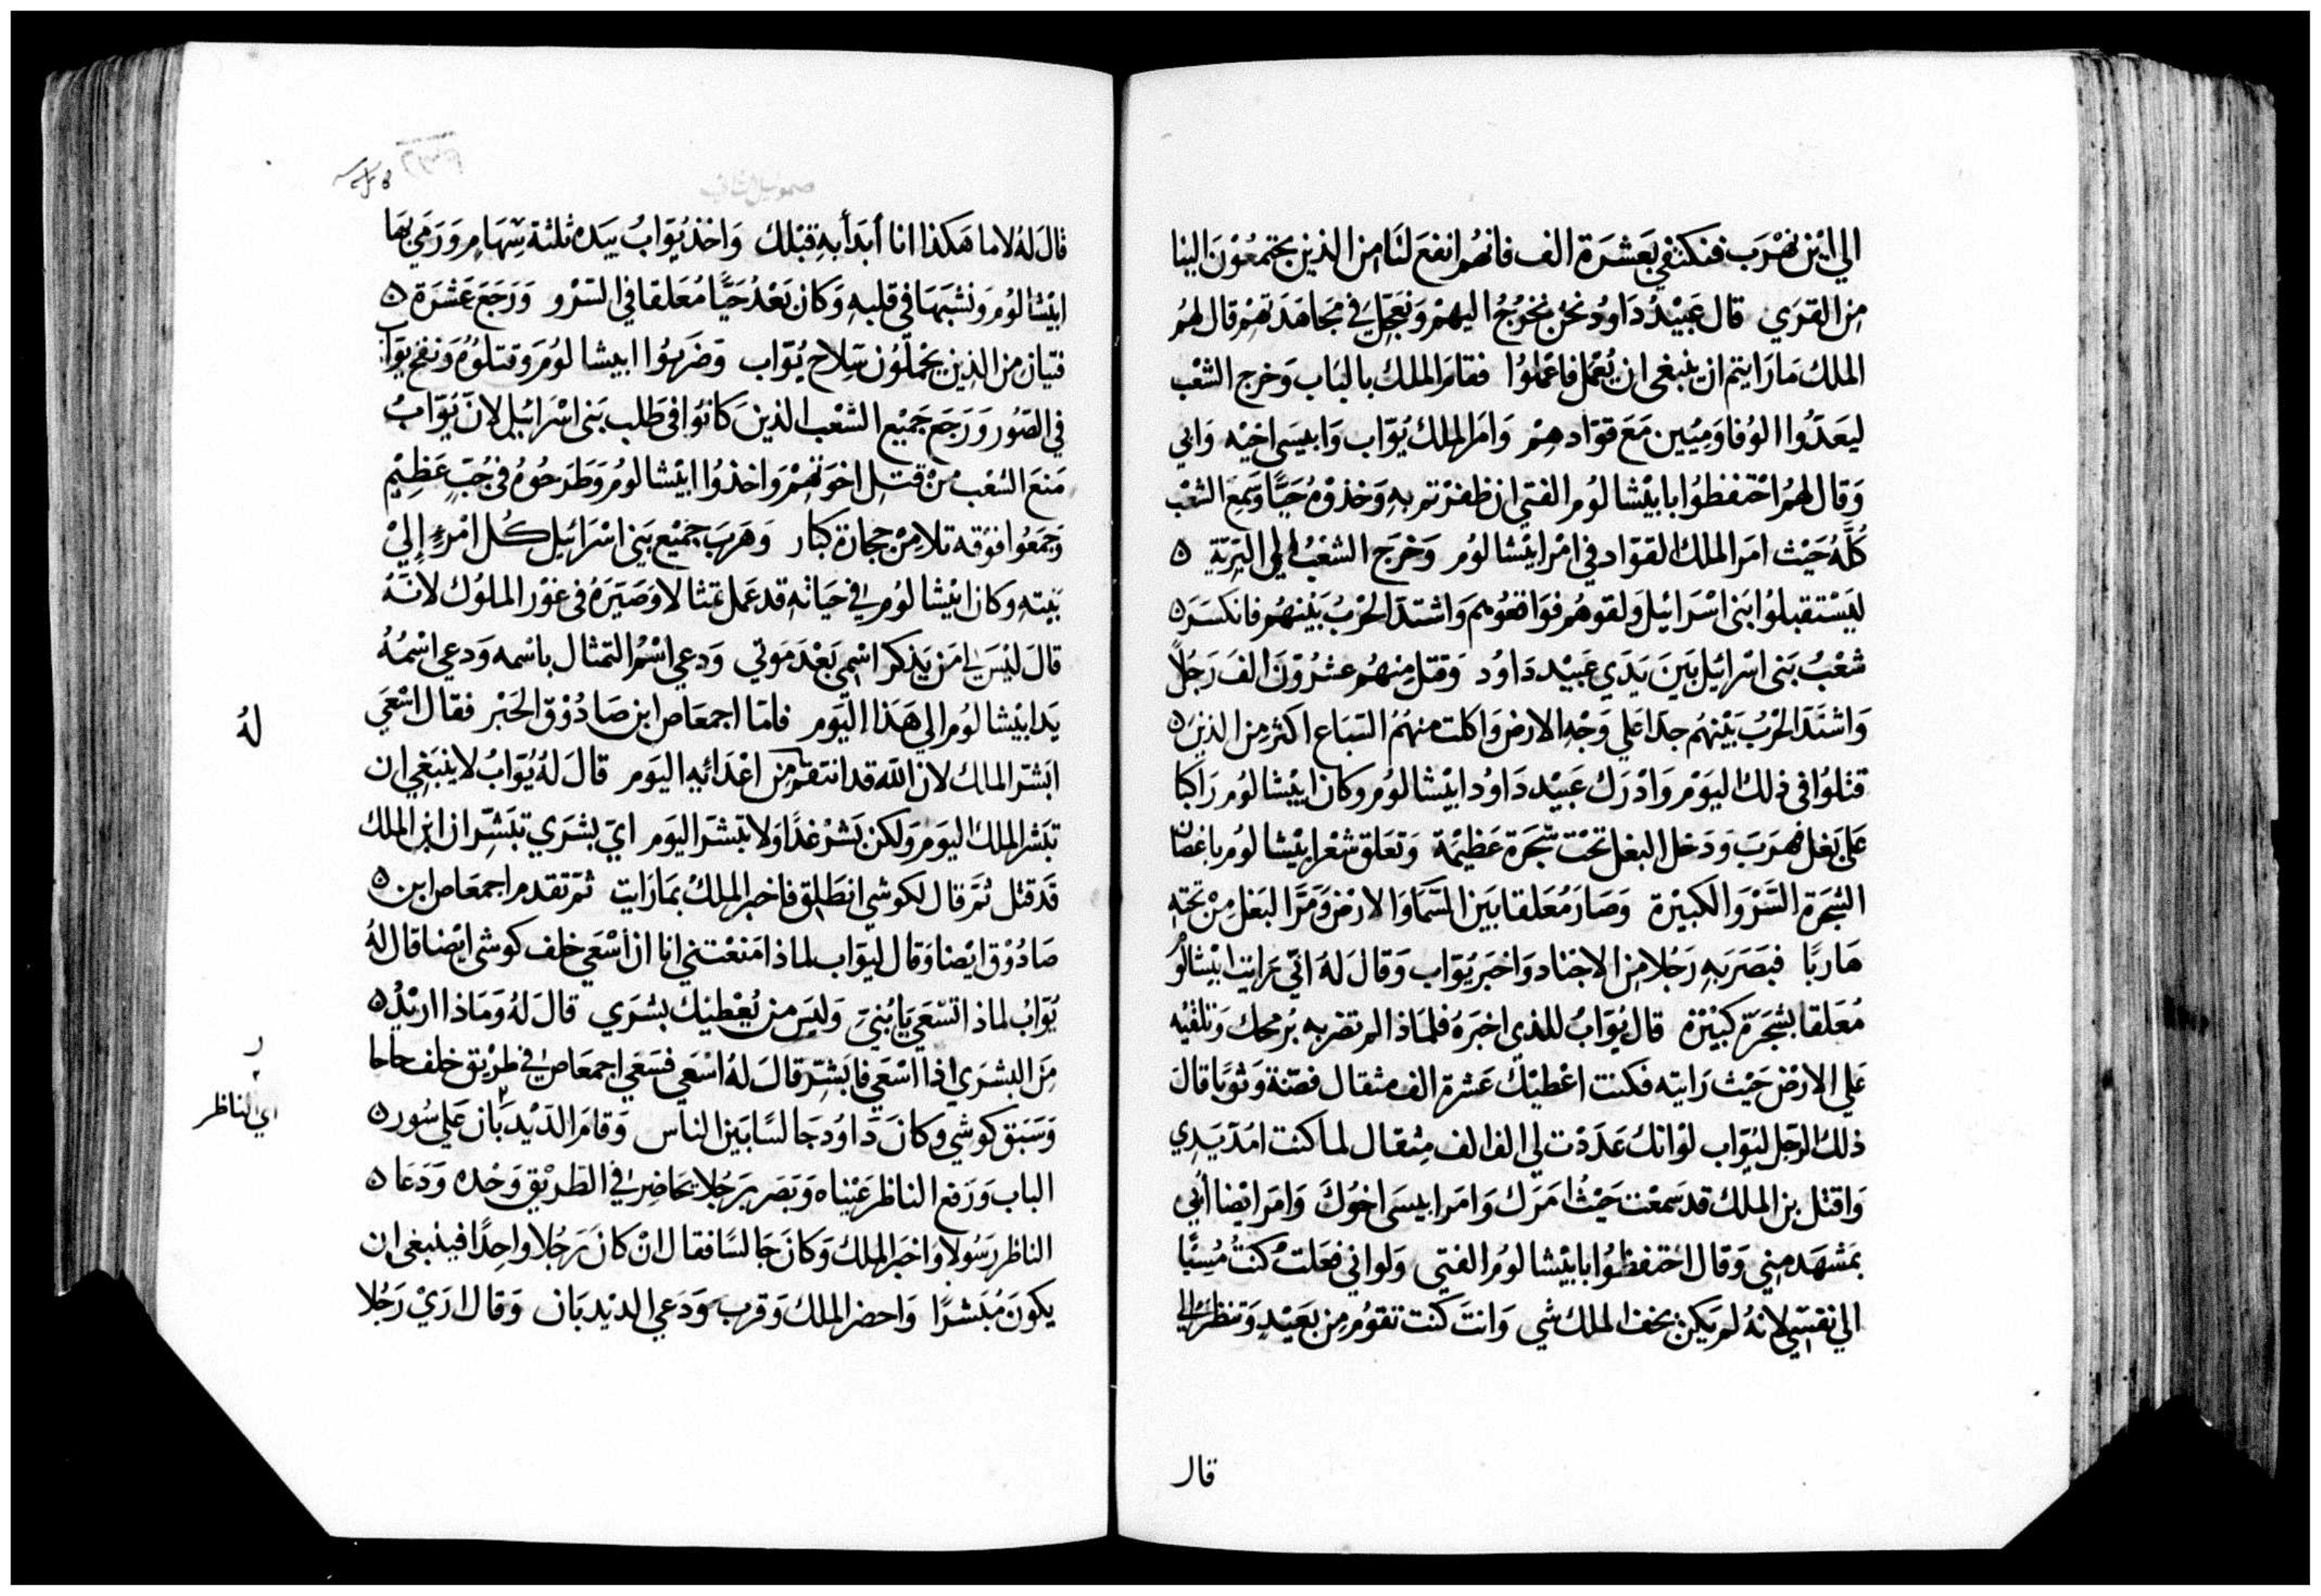 الي اين نهرب فنكتفي بعشرة الف فانهم انفع لنا من الذين يجتمعون الينا
من القري قال عبيد داود نحن نخرج اليهم ونعجل في مجاهدتهم قال لهم
الملك ما رايتم ان ينبغي ان يعمل فاعملوا فقام الملك بالباب وخرج الشعب
ليعدوا الوفا وميين مع قوادهم وامر الملك يوّاب وابيسي اخيه واتي
وقال لهم احتفظوا بابيشالوم الفتي ان ظفرتم به وخذوه حيّا وسمع الشعب
كلّه حيث امر الملك القوّاد في امر ابيشالوم وخرج الشعب الي البريّة ۵
ليستقبلوا بني اسرائيل ولقوهم فواقعوهم واشتد الحرب بينهم فانكسر ۵
شعب بني اسرائيل بين يدي عبيد داود وقتل منهم عشرون الف رجلاً
واشتد الحرب بينهم جدا علي وجه الارض واكلت منهم السباع اكثر من الذين ۵
قتلوا في ذلك اليوم وادرك عبيد داود ابيشالوم وكان ابيشالوم راكبا
علي بغل فهرب ودخل البغل تحت شجرة عظيمة وتعلق شعر ابيشالوم باغصان
الشجرة السرو الكبيرة وصار معلقا بين السما والارض ومرّ البغل من تحته
هاربًا فبصر به رجلا من الاجناد واخبر يوّاب وقال له انّي رايت ابيشالوم
معلقا بشجرة كبيرة قال يوّابُ للذي اخبره فلماذا لم تضربه برمحك وتلقيه
علي الارض حيث رايته فكنت اعطيك عشرة الف مثقال فضّة وثوبًا قال
ذلك الرجل ليوّاب لو انك عددت لي الف الف مثقال لما كنت امدّ يدي
واقتل بن الملك قد سمعت حيثُ امرك وامر ابيسي اخوك وامر ايضا اتي
بمشهد مني وقال احتفظوا بابيشالوم الفتي ولو اني فعلت كنت مسيّا
الي نفسي لانه لم يكن يخف الملك شي وانت كنت تقوم من بعيد وتنظر الي
قال
صموئيل الثاني
قال له لا ما هكذا انا أبدأ به قبلك واخذ يوّاب بيده ثلثة سهام ورمي بها
ابيشالوم ونشبها في قلبه وكان بعد حيّا معلقا في السرو ورجع عشرة ۵
فتيان من الذين يحملون سلاح يوّاب وضربوا ابيشالوم وقتلوه ونفخ يوّاب
في الصور ورجع جميع الشعب الذين كانوا في طلب بني اسرائيل لانّ يوّابُ
منع الشعب من قتل اخوتهم واخذوا ابيشالوم وطرحوه في جبّ عظيم
وجمعوا فوقه تلا من حجارة كبار وهرب جميع بني اسرائيل كل امرءٍ إلي
بيته وكان ابيشالوم في حياته قد عمل تمثالا وصيّره في غور الملوك لانّه
قال ليس لي من يذكر اسمي بعد موتي ودعي اسم التمثال باسمه ودعي اسمه
يد ابيشالوم الي هذا اليوم فامّا اجمعاص ابن صادوق الحبر فقال اسعي
ابشّر الملك لان اللّه قد انتقم من اعدائه اليوم قال له يوّابُ لا ينبغي ان
له
تبشر الملك اليوم ولكن بشر غدًا ولا تبشر اليوم ايّ بشري تبشّر ان ابن الملك
قد قتل ثمّ قال لكوشي انطلق فاخبر الملك بما رايت ثمّ تقدم اجمعاص ابن ۵
صادوق ايضا وقال ليوّاب لماذا منعتني انا ان اسعي خلف كوشي ايضا قال له
يوّابُ لماذا تسعي يا بنيّ وليس من يعطيك بشري قال له وماذا اريد ۵
من البشري اذا اسعي فابشّر قال له اسعي فسعي اجمعاص في طريق خلف حاحا
ر
وسبق كوشي وكان داود جالسًا بين الناس وقام الدّيدبان علي سور ۵
اي الناظر
الباب ورفع الناظر عيناه وبصر برجلا يحاضر في الطريق وحده ودعا ۵
الناظر رسولا واخبر الملك وكان جالسًا فقال ان كان رجلا واحدًا فينبغي ان
يكون مُبشرًا واحضر الملك وقرب ودعي الديدبان وقال اري رجلا